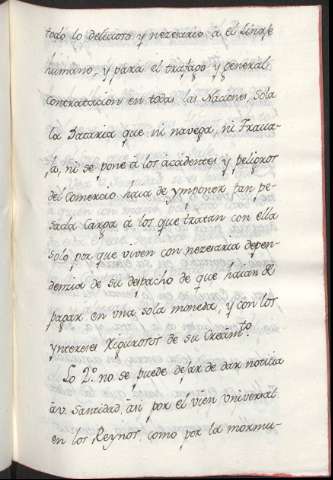 todo lo delicioso y nezesario a el Linaje
humano, y para el trafago y general
contratacion en todas las Naciones, sola
la Dataria que ni navega, ni Traua-
ja, ni se pone à los accidentes y peligros
del Comercio haia de ymponer tan pe-
sada Carga à los que tratan con ella
solo por que viven con nezesaria depen-
denzia de su despacho de que haian de
pagar en vna sola moneda, y con los
yntereses rigurosos de su Creimto.
Lo 2o. no se puede dejar de dar noticia
àv. Santidad, asi por el vien vniversal
en los Reynos, como por la mormu-